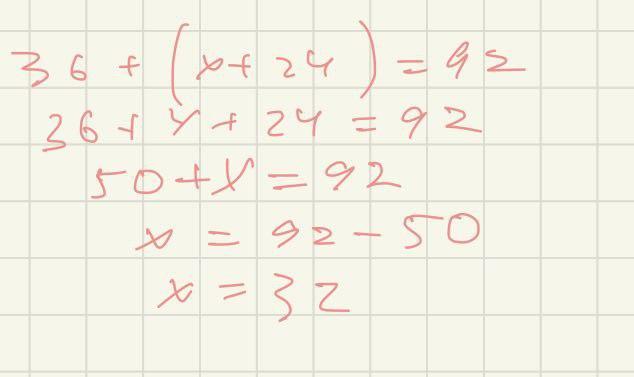 36 + (x + 24) = 92
36 + x + 24 = 92
50 + x = 92
x = 92 - 50
x = 32